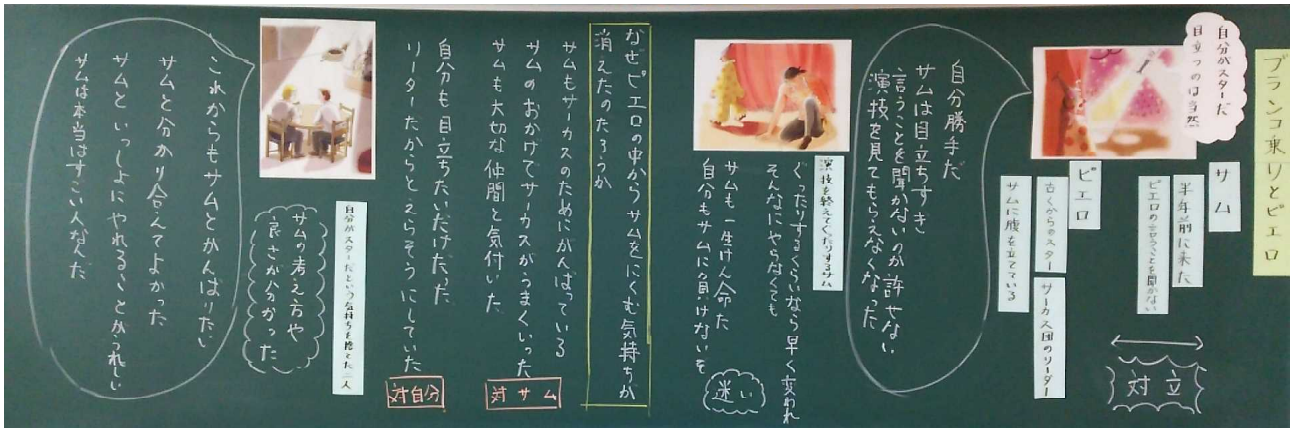 ブランコ乗りとピエロ
自分がスターだ
目立つのは当然
サム
半年前に来た
ピエロの言うことを聞かない
対立
ピエロ
古くからのスター
サーカス団のリーダー
サムに腹を立てている
自分勝手だ
サムは目立ちすぎ
言うことを聞かないのが許せない
演技を見てもらえなくなった
演技を終えてぐったりするサム
ぐったりするくらいなら早く変われ
そんなにやらなくても
サムも一生けん命だ
自分もサムに負けないぞ
迷い
なぜピエロの中からサムをにくむ気持ちが
消えたのだろうか
サムもサーカスのためにがんばっている
サムのおかげでサーカスがうまくいった
サムも大切な仲間と気付いた
対サム
自分も目立ちたいだけだった
リーダーだからとえらそうにしていた
対自分
自分がスターだという気持ちを捨てた二人
サムの考え方や
良さが分かった
これからもサムとがんばりたい
サムと分かり合えてよかった
サムといっしょにやれることがうれしい
サムは本当はすごい人なんだ